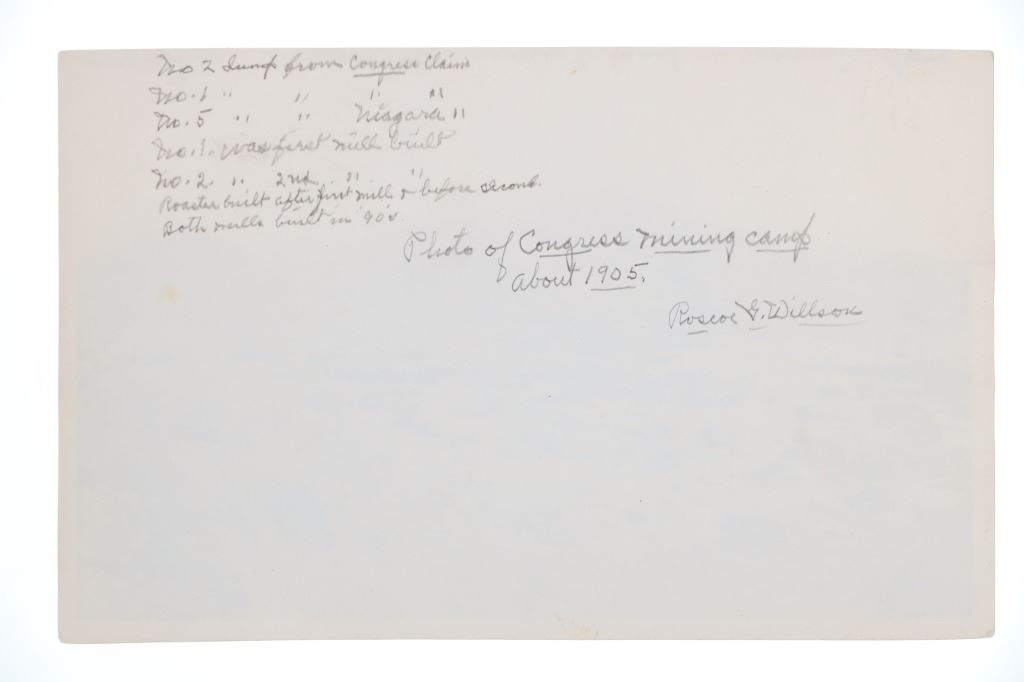 No 2 dump from Congress Claim
No. 1 " " " "
No. 5 " " Niagara "
No. 1. was first mill built
No. 2. " 2nd " "
Roaster built after first mill & before second.
Both mills built in '90's.
Photo of Congress mining camp
about 1905.
Roscoe G. Willson